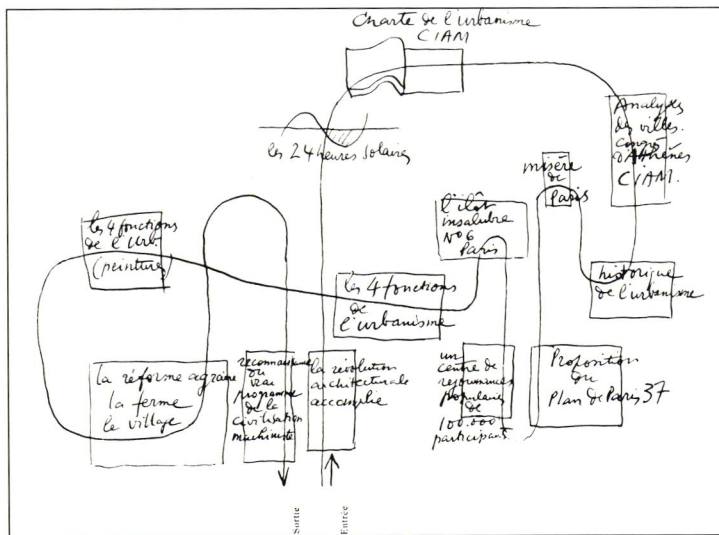 Charte de l'urbanisme
CIAM
les 24 heures solaires
Analyses
des villes.
congrès
d'Athènes
CIAM.
misère
de
Paris
l'ilôt
insalubre
N° 6
Paris
les 4 fonctions
de l'urb.
(peinture)
les 4 fonctions
de
l'urbanisme
historique
de l'urbanisme
la réforme agraire
la ferme
le village
reconnaissance
du
vrai
programme
de la
civilisation
machiniste
la révolution
architecturale
accomplie
un
centre de
réjouissances
populaires
de
100.000
participants
Proposition
du
Plan de Paris 37
Sortie
Entrée